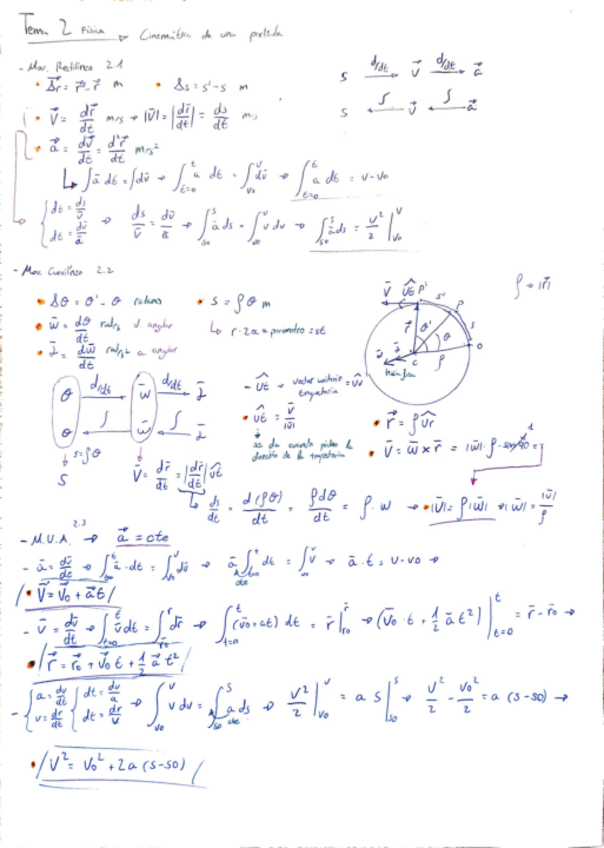 Tema 2 Física → Cinemática de una partícula
- Mov. Rectilíneo 2.1
• Δr⃗ = r⃗' - r⃗ m • Δs = s' - s m
s d/dt→ v⃗ d/dt→ a⃗
s ←∫ v⃗ ←∫ a⃗
• v⃗ = dr⃗/dt m/s → |v̄| = |dr̄/dt| = ds/dt m/s
• a⃗ = dv⃗/dt = d²r⃗/dt m/s²
↳ ∫ā dt = ∫dv̄ → ∫_{t=0}^{t} ā dt = ∫_{v0}^{v} dv̄ → ∫_{t=0}^{t} a dt = v - v0
{ dt = ds/v̄
dt = dv̄/ā → ds/v̄ = dv̄/ā → ∫_{s0}^{s} ā ds = ∫_{v0}^{v} v dv → ∫_{s0}^{s} ā ds = v²/2 |_{v0}^{v}
- Mov. Curvilíneo 2.2
• Δθ = θ' - θ • s = ρθ m
ρ = |r⃗|
• w̄ = dθ/dt rad/s v angular
• ᾱ = dw̄/dt rad/s² a angular
v⃗ ût P' s' P s O
r⃗ θ' θ c ρ
θ d/dt→ w̄ d/dt→ ᾱ
θ ←∫ w̄ ←∫ ᾱ
↓ s = ρθ
s
- ût → vector unitario trayectoria
• ût = v̄/|v̄|
dirección de la trayectoria
• r⃗ = ρûr
• v̄ = w̄ × r̄ = |w̄| · ρ · sen 90 =
v̄ = dr̄/dt = |dr̄/dt| ût
↳ ds/dt = d(ρθ)/dt = ρdθ/dt = ρ · w → • |v̄| = ρ|w̄| → |w̄| = |v̄|/ρ
2.3
- M.U.A. → a⃗ = cte
- ā = dv̄/dt → ∫_{t0}^{t} ā · dt = ∫_{v0}^{v} dv̄ → ā ∫_{t=0}^{t} dt = ∫_{v0}^{v} → ā · t = v - v0 →
cte
• v⃗ = v⃗0 + a⃗t
- v̄ = dr̄/dt → ∫_{t=0}^{t} v̄ dt = ∫_{r0}^{r} dr̄ → ∫_{t=0}^{t} (v̄0 + at) dt = r̄ |_{r0}^{r} → (v̄0 · t + 1/2 ā t²) |_{t=0}^{t} = r̄ - r̄0 →
• r⃗ = r⃗0 + v⃗0 t + 1/2 a⃗ t²
- { a = dv/dt { dt = dv/a
v = dr/dt dt = dr/v → ∫_{v0}^{v} v dv = ∫_{s0}^{s} a ds → v²/2 |_{v0}^{v} = a s |_{s0}^{s} → v²/2 - v0²/2 = a (s - s0) →
cte
• v² = v0² + 2a (s - s0)